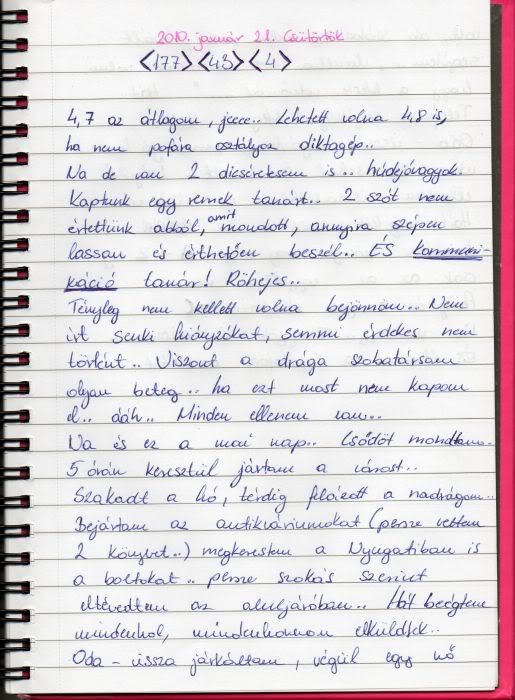 2010. január 21. Csütörtök
<177> <43> <4>
4,7 az átlagom, jeee.. Lehetett volna 4,8 is,
ha nem pofára osztályoz diktagép..
Na de van 2 dicséretesem is .. húdejóvagyok.
Kaptunk egy remek tanárt.. 2 szót nem
értettünk abból, amit mondott, annyira szépen
lassan és érthetően beszél.. ÉS kommuni-
káció tanár! Röhejes..
Tényleg nem kellett volna bejönnöm.. Nem
írt senki hiányzókat, semmi érdekes nem
történt.. Viszont a drága szobatársam
olyan beteg .. ha ezt most nem kapom
el.. ááh.. Minden ellenem van..
Na és ez a mai nap.. Csődöt mondtam..
5 órán keresztül jártam a várost..
Szakadt a hó, térdig felázott a nadrágom..
Bejártam az antikváriumokat (persze vettem
2 könyvet..) megkerestem a Nyugatiban is
a boltokat .. persze szokás szerint
eltévedtem az aluljáróban.. Hát beégtem
mindenhol, mindenhonnan elküldtek..
Oda-vissza járkáltam, végül egy nő